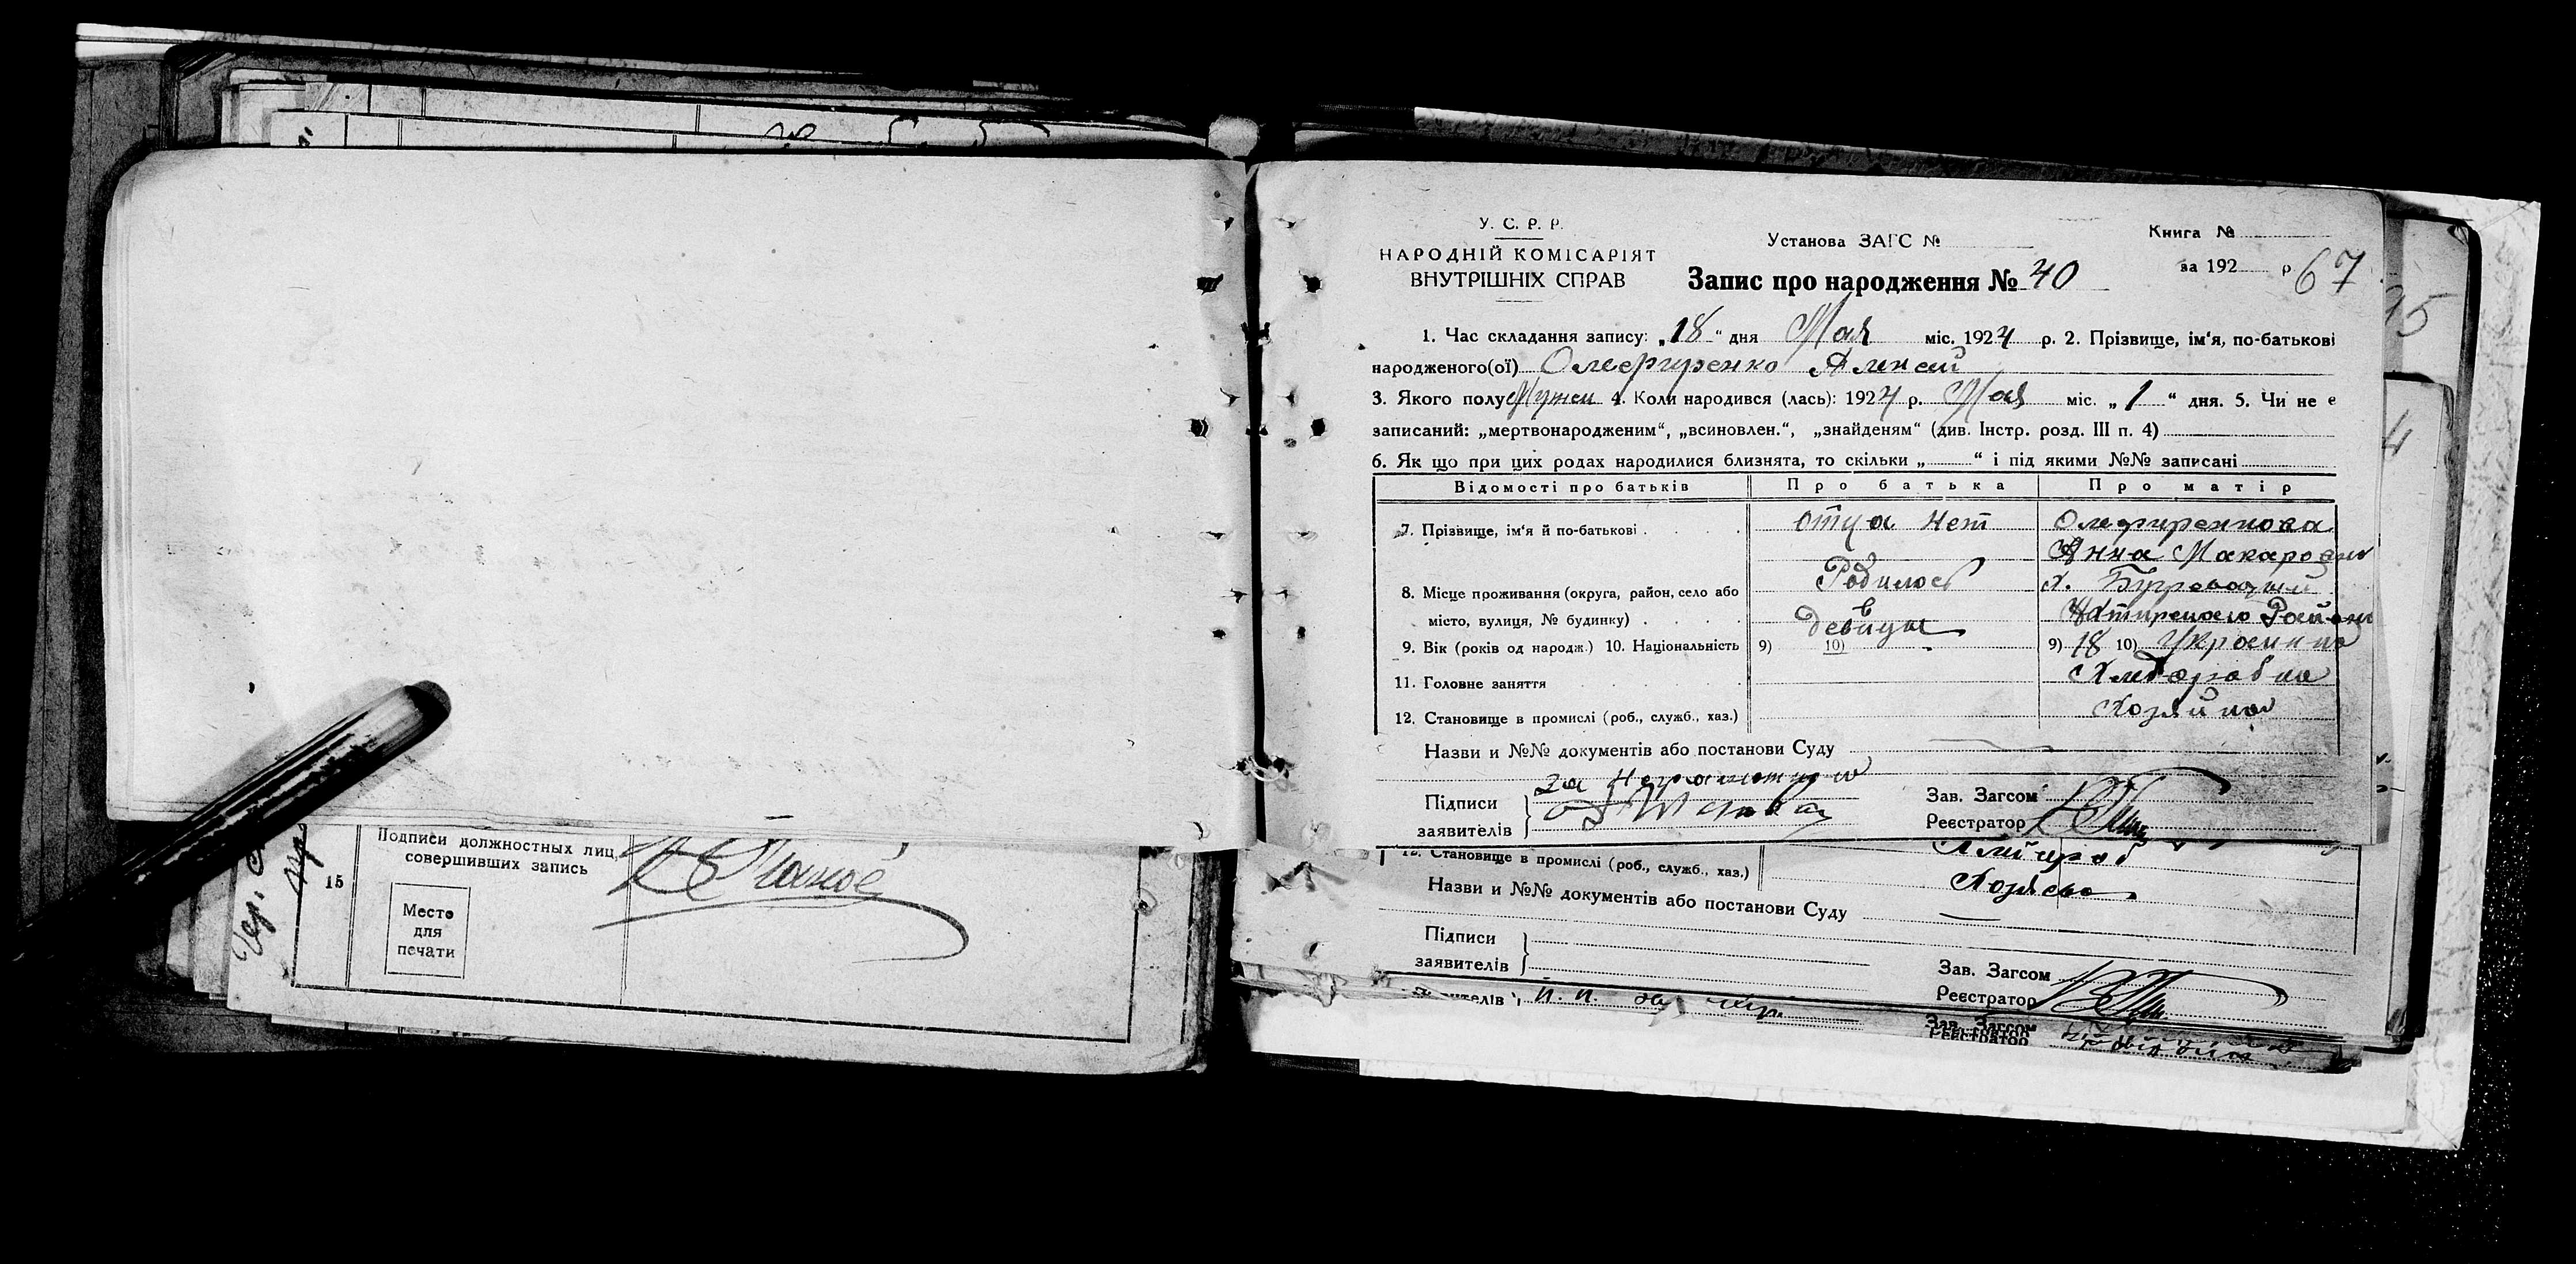 Подписи должностных лиц,
совершивших запись
15
Место
для
печати
У. С. Р. Р.
НАРОДНІЙ КОМІСАРІЯТ
ВНУТРІШНІХ СПРАВ
Установа ЗАГС №
Запис про народження № 40
Книга №
за 192 р
67
1. Час складання запису: „18“ дня Мая міс. 1924 р. 2. Прізвище, ім‘я, по-батькові
народженого(ої) Олефиренко Алексей
3. Якого полу Мужск 4. Коли народився (лась): 1924 р. Мая міс. „1“ дня. 5. Чи не є
записаний: „мертвонародженим“, „всиновлен.“, „знайденям“ (див. Інстр. розд. III п. 4)
6. Як що при цих родах народилися близнята, то скільки „ “ і під якими №№ записані
Відомості про батьків Про батька Про матір
7. Прізвище, ім‘я й по-батькові отца нет Олефиренкова
Анна Макаровн
8. Місце проживання (округа, район, село або Родилось х.
місто, вулиця, № будинку) в девицах Района
9. Вік (років од народж.) 10. Національність 9) 10) 9) 18 10) Украинка
11. Головне заняття
12. Становище в промислі (роб., служб., хаз.) Хозяйка
Назви и №№ документів або постанови Суду
за неграмотную
Підписи
заявителів
Зав. Загсом
Реєстратор
12. Становище в промислі (роб., служб., хаз.)
Назви и №№ документів або постанови Суду
Підписи
заявителів
Зав. Загсом
Реєстратор
Зав. Загсом
Реєстратор